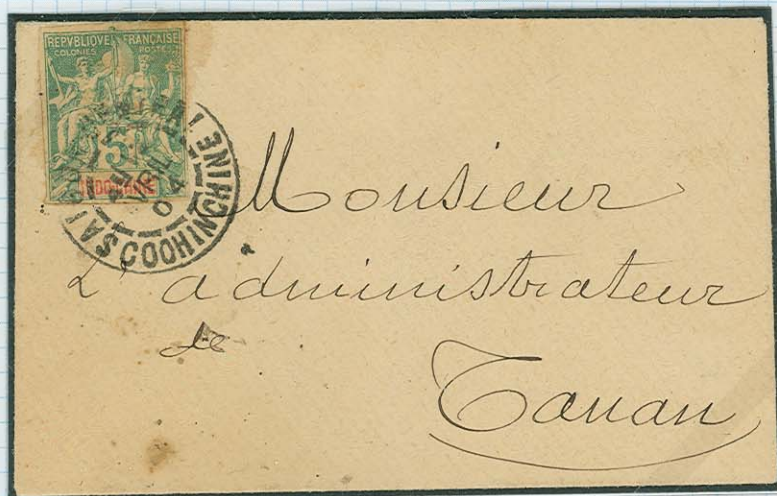 REPVBLIQVE FRANÇAISE
COLONIES POSTES
5
INDO-CHINE
COCHINCHINE
AVRIL
04
Monsieur
L'administrateur
de
Tanan